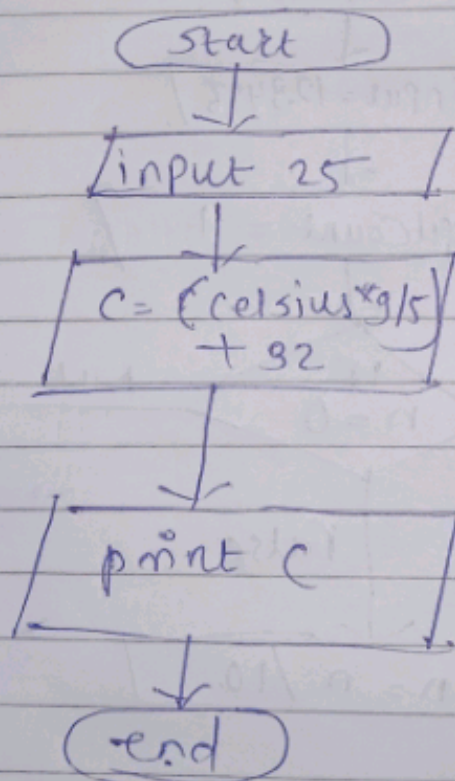 start
input 25
C= (Celsius*9/5)
+ 92
print C
end